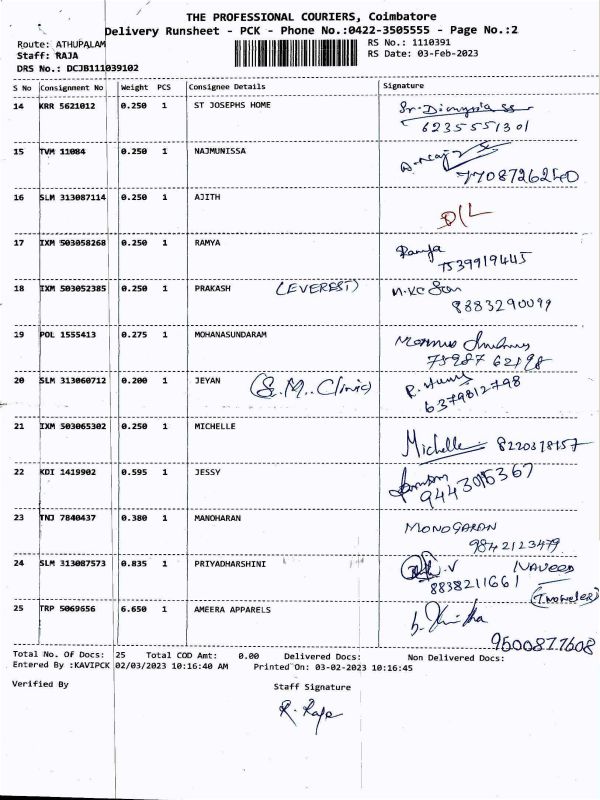 THE PROFESSIONAL COURIERS, Coimbatore
Delivery Runsheet - PCK - Phone No.:0422-3505555 - Page No.:2
Route: ATHUPALAM
RS No.: 1110391
Staff: RAJA
RS Date: 03-Feb-2023
DRS No.: DCJB111039102
S No Consignment No Weight PCS Consignee Details Signature
14 KRR 5621012 0.250 1 ST JOSEPHS HOME
6235551301
15 TVM 11084 0.250 1 NAJMUNISSA
7708726240
16 SLM 313087114 0.250 1 AJITH D/L
17 IXM 503058268 0.250 1 RAMYA Ramya
7539919445
18 IXM 503052385 0.250 1 PRAKASH (EVEREST)
8883290099
19 POL 1555413 0.275 1 MOHANASUNDARAM
75987 62198
20 SLM 313060712 0.200 1 JEYAN (S.M. Clinic)
6379812798
21 IXM 503065302 0.250 1 MICHELLE
Michelle 8220318157
22 KDI 1419902 0.595 1 JESSY
9443015367
23 TNJ 7840437 0.380 1 MANOHARAN MONOGARAN
9842123479
24 SLM 313087573 0.835 1 PRIYADHARSHINI NAVEED
8838211661
25 TRP 5069656 6.650 1 AMEERA APPARELS
9600877608
Total No. Of Docs: 25 Total COD Amt: 0.00 Delivered Docs: Non Delivered Docs:
Entered By :KAVIPCK 02/03/2023 10:16:40 AM Printed On: 03-02-2023 10:16:45
Verified By Staff Signature
R. Raja